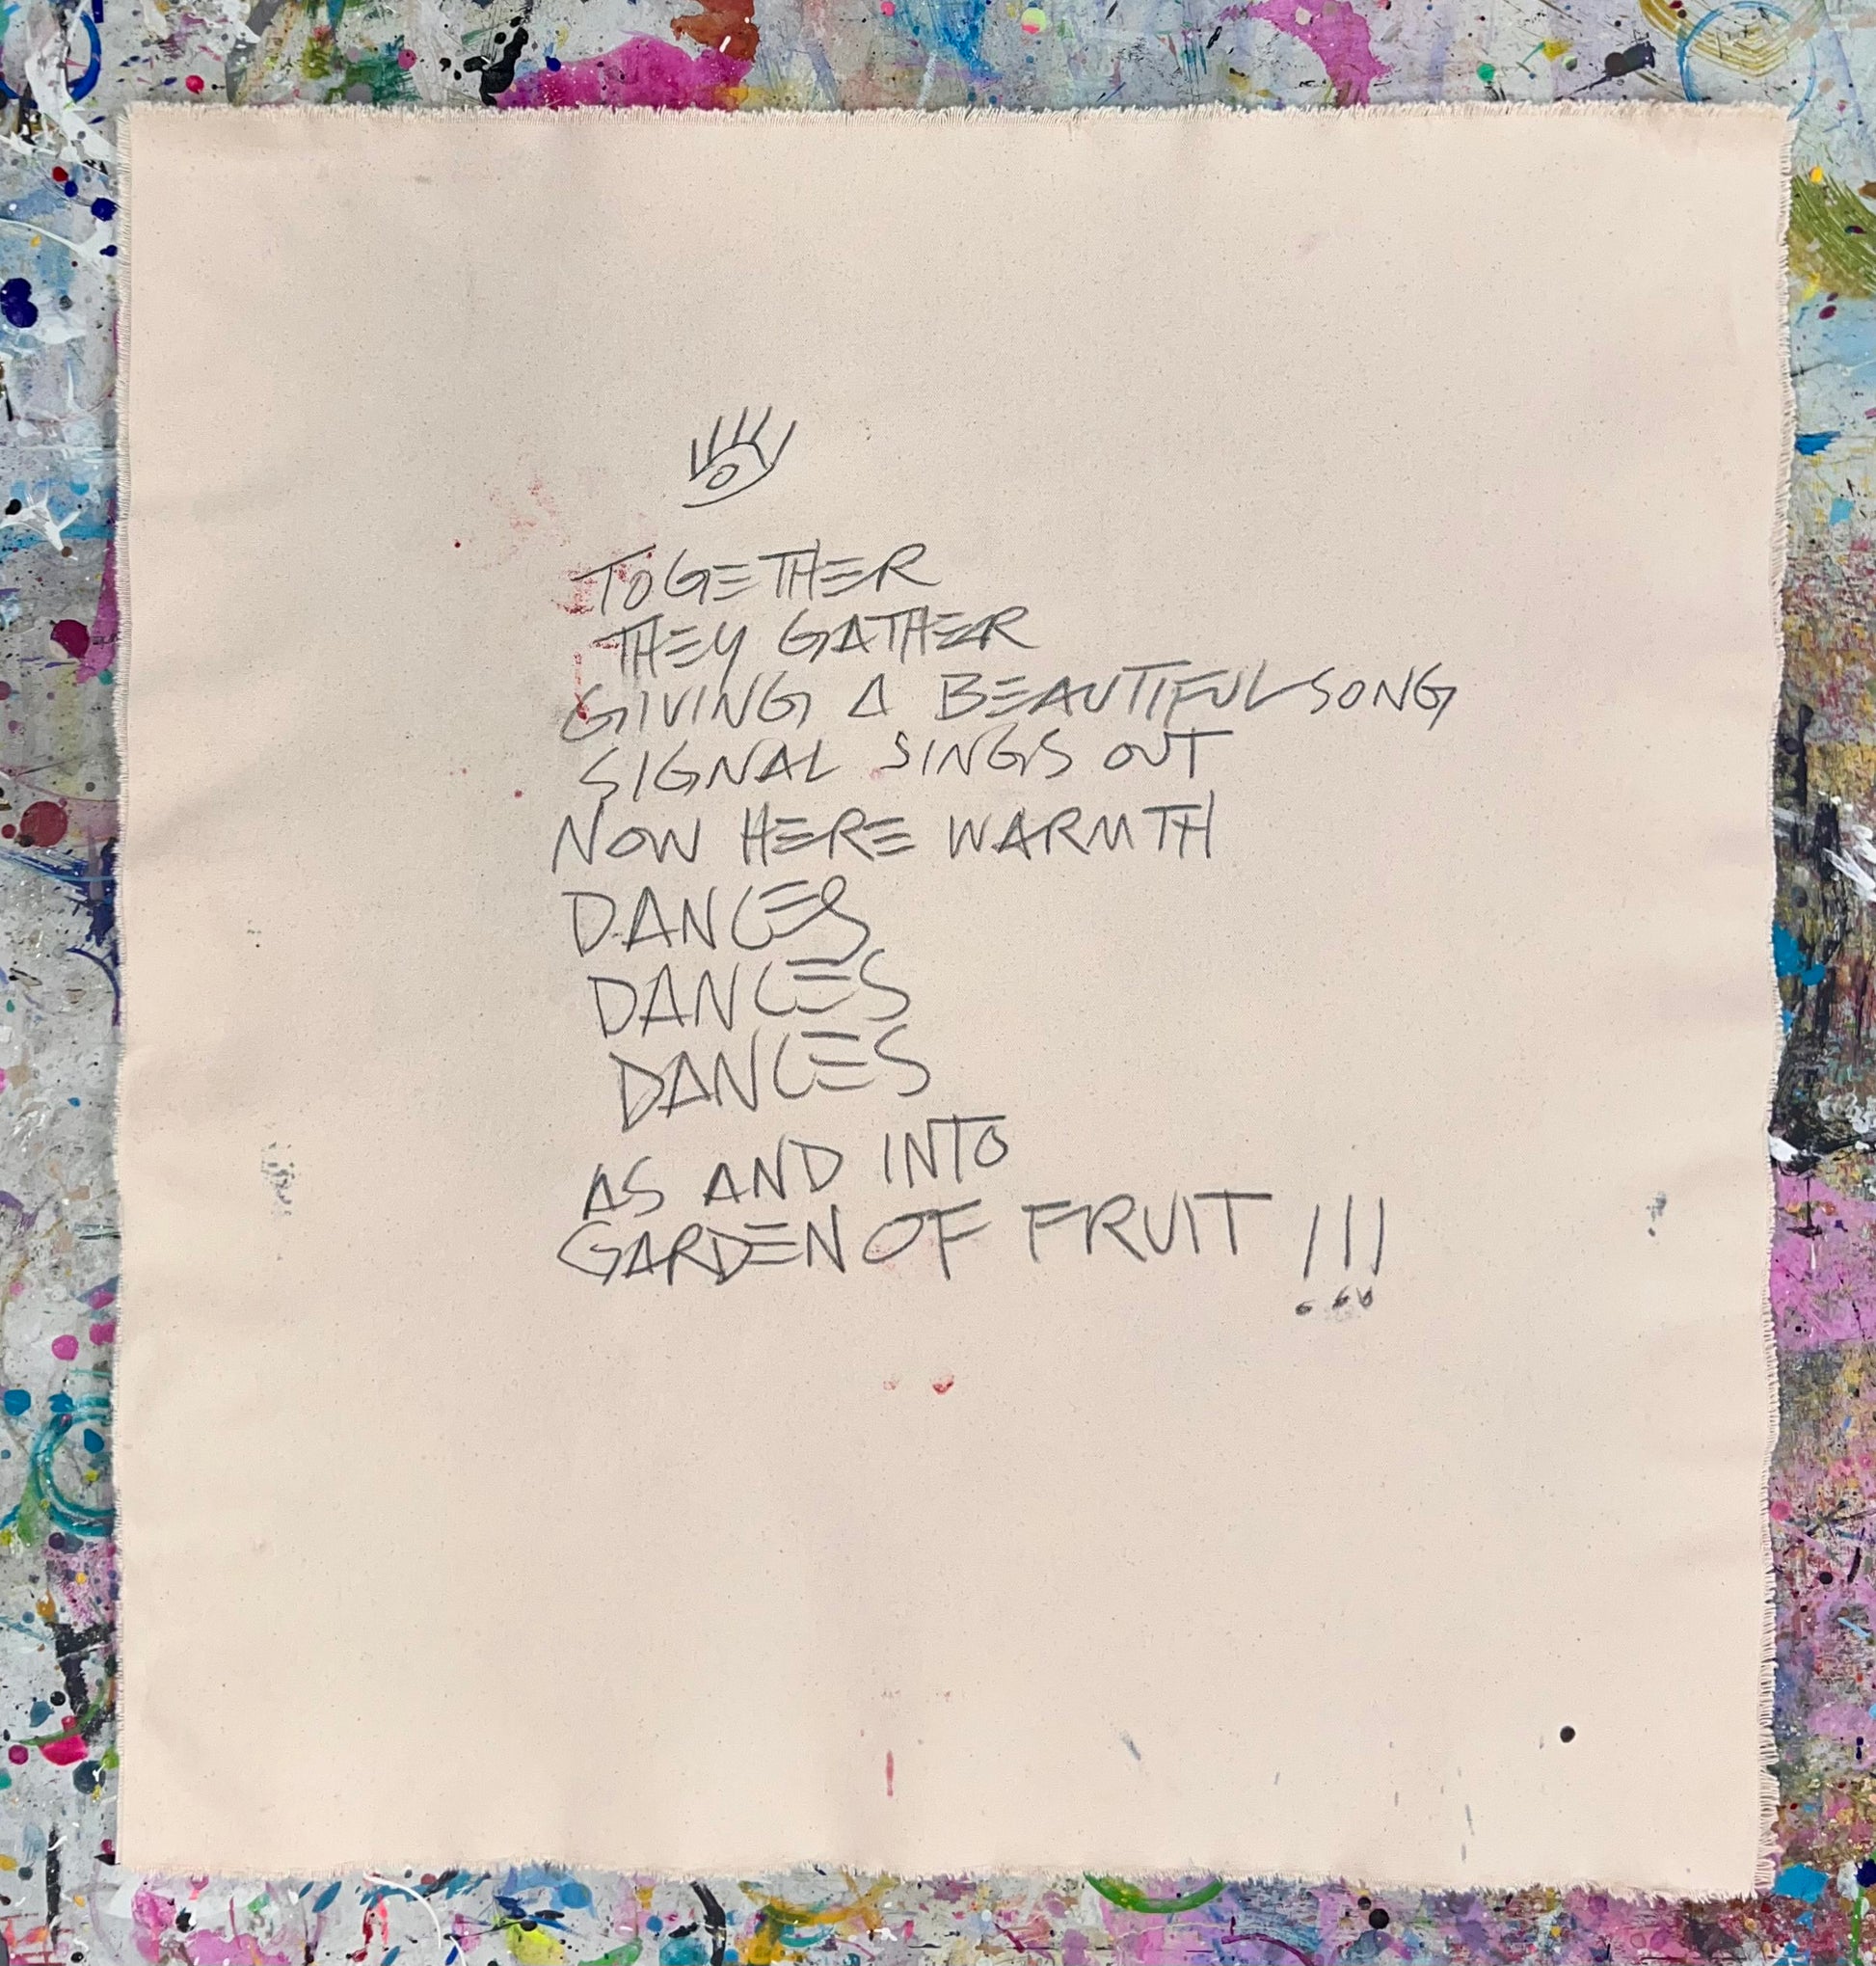 TOGETHER
THEY GATHER
GIVING A BEAUTIFUL SONG
SIGNAL SINGS OUT
NOW HERE WARMTH
DANCES
DANCES
DANCES
AS AND INTO
GARDEN OF FRUIT !!!